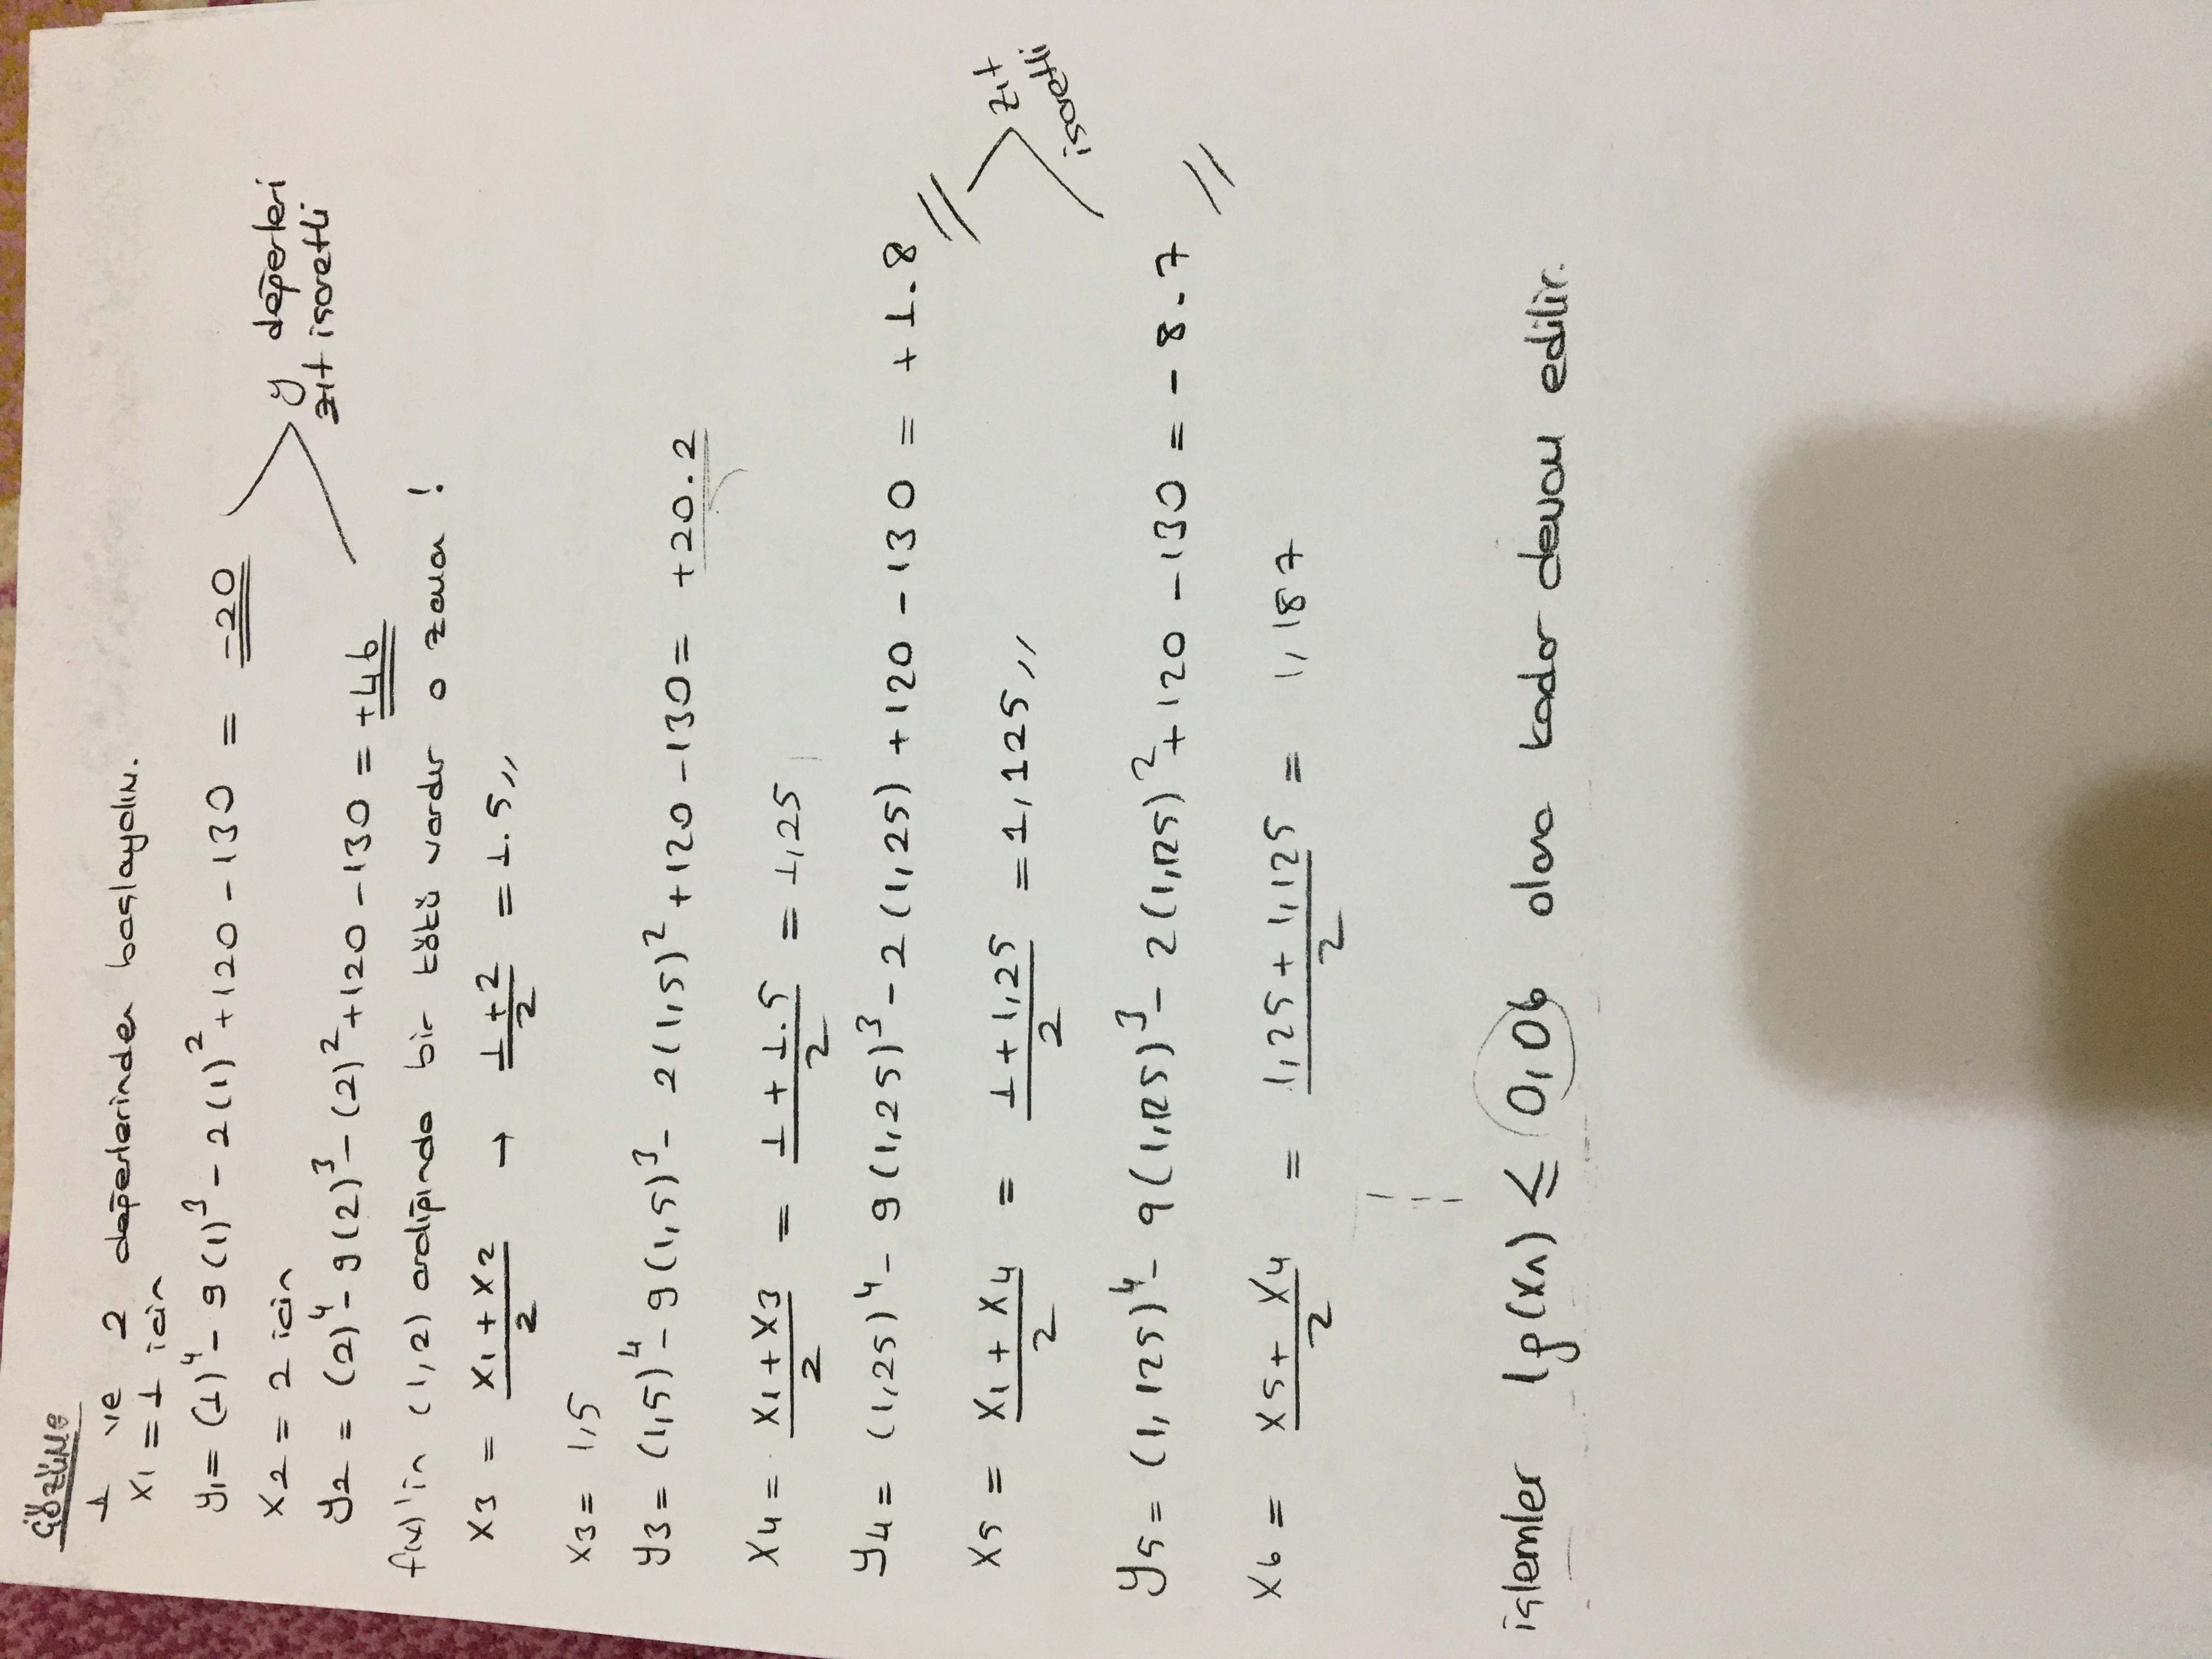 ÇÖZÜM:
1 ve 2 değerlerinden başlaydım.
x1 = 1 icin
y1 = (1)^4 - 9(1)^3 - 2(1)^2 + 120 - 130 = -20
x2 = 2 icin
y2 = (2)^4 - 9(2)^3 - (2)^2 + 120 - 130 = +46
y değerleri
zıt isaretli
f(x)'in (1,2) aralığında bir kökü vardır o zaman !
x3 = (x1 + x2)/2 → (1+2)/2 = 1.5,,
x3 = 1,5
y3 = (1,5)^4 - 9(1,5)^3 - 2(1,5)^2 + 120 - 130 = +20.2
x4 = (x1 + x3)/2 = (1 + 1.5)/2 = 1,25
y4 = (1,25)^4 - 9(1,25)^3 - 2(1,25) + 120 - 130 = +1.8 //
x5 = (x1 + x4)/2 = (1 + 1,25)/2 = 1,125,,
zıt
isaretli
y5 = (1,125)^4 - 9(1,125)^3 - 2(1,125)^2 + 120 - 130 = -8.7 //
x6 = (x5 + x4)/2 = (1,25 + 1,125)/2 = 1,187
işlemler |f(xn) ≤ 0,06 olana kadar devam edilir.